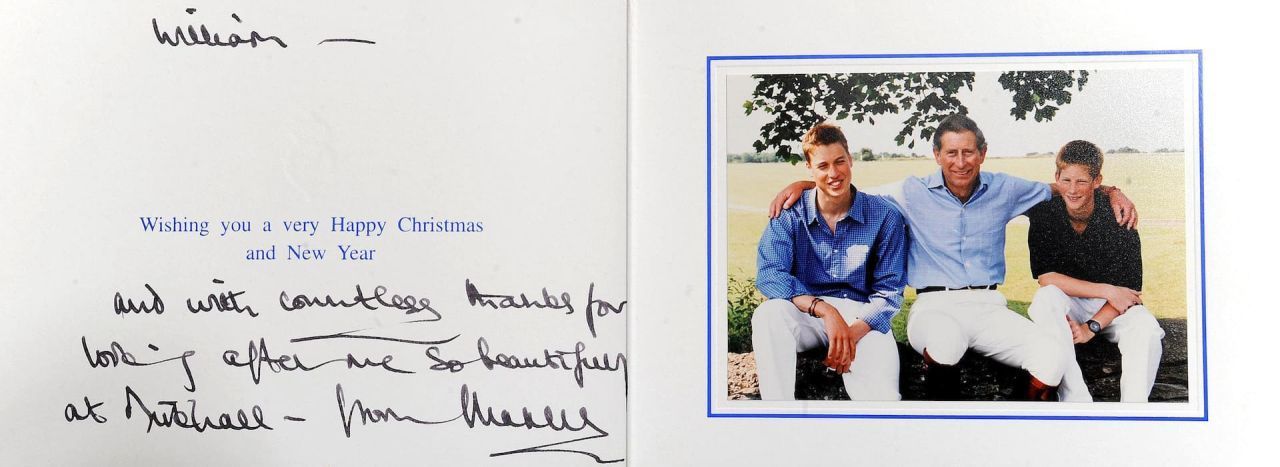 William —
Wishing you a very Happy Christmas
and New Year
and with countless thanks for
looking after me so beautifully
at Birkhall – from Charles